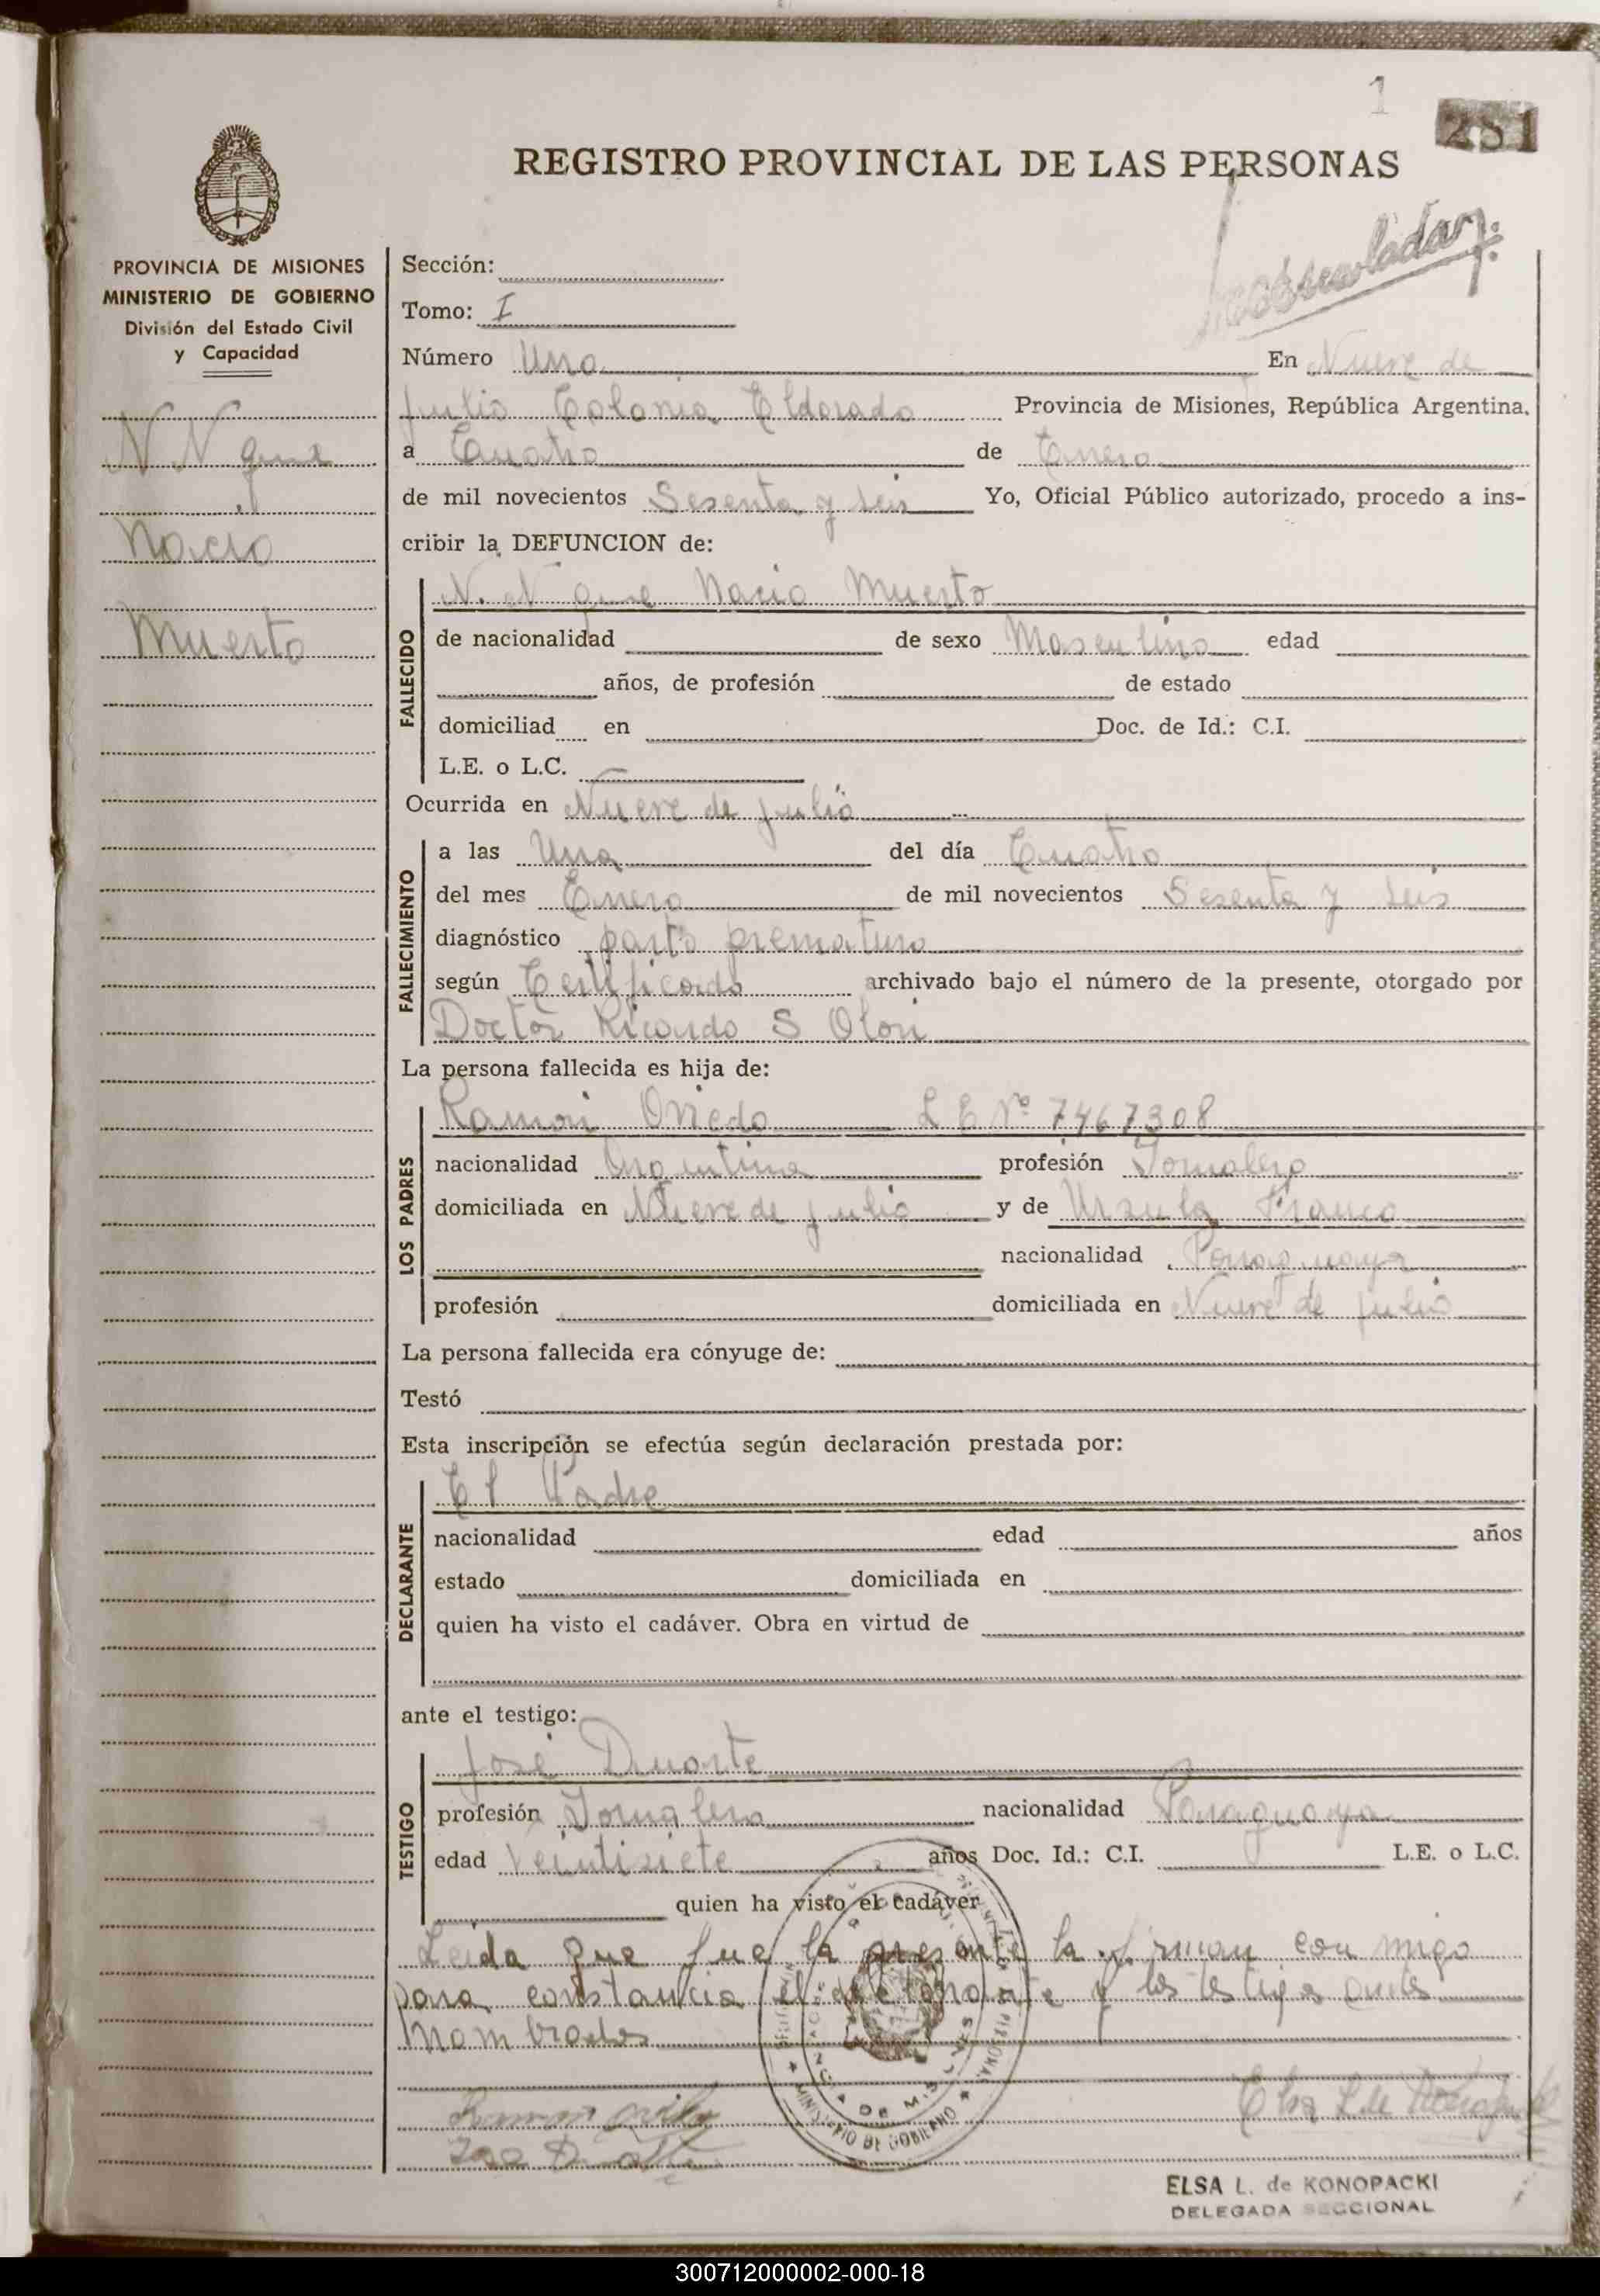 1
251
REGISTRO PROVINCIAL DE LAS PERSONAS
PROVINCIA DE MISIONES
MINISTERIO DE GOBIERNO
División del Estado Civil
y Capacidad
N N que
Nacio
Muerto
Sección:
Tomo: I
Número Uno En Nueve de
Julio Colonia Eldorado Provincia de Misiones, República Argentina,
a Cuatro de Enero
de mil novecientos Sesenta y seis Yo, Oficial Público autorizado, procedo a ins-
cribir la DEFUNCION de:
FALLECIDO
N. N que Nacio Muerto
de nacionalidad de sexo Masculino edad
años, de profesión de estado
domiciliad en Doc. de Id.: C.I.
L.E. o L.C.
Ocurrida en Nueve de julio
FALLECIMIENTO
a las Una del día Cuatro
del mes Enero de mil novecientos Sesenta y seis
diagnóstico parto prematuro
según Certificado archivado bajo el número de la presente, otorgado por
Doctor Ricardo S Olori
La persona fallecida es hija de:
LOS PADRES
Ramon Oviedo L E Nº 7467308
nacionalidad Argentina profesión Jornalero
domiciliada en Nueve de julio y de Ursula Franco
nacionalidad Paraguaya
profesión domiciliada en Nueve de julio
La persona fallecida era cónyuge de:
Testó
Esta inscripción se efectúa según declaración prestada por:
DECLARANTE
El Padre
nacionalidad edad años
estado domiciliada en
quien ha visto el cadáver. Obra en virtud de
ante el testigo:
TESTIGO
José Duarte
profesión Jornalero nacionalidad Paraguaya
edad Veintisiete años Doc. Id.: C.I. L.E. o L.C.
quien ha visto el cadáver
Leida que fue la presente la firman con migo
para constancia el declarante y los testigos antes
nombrados
MINISTERIO DE GOBIERNO
ELSA L. de KONOPACKI
DELEGADA SECCIONAL
300712000002-000-18